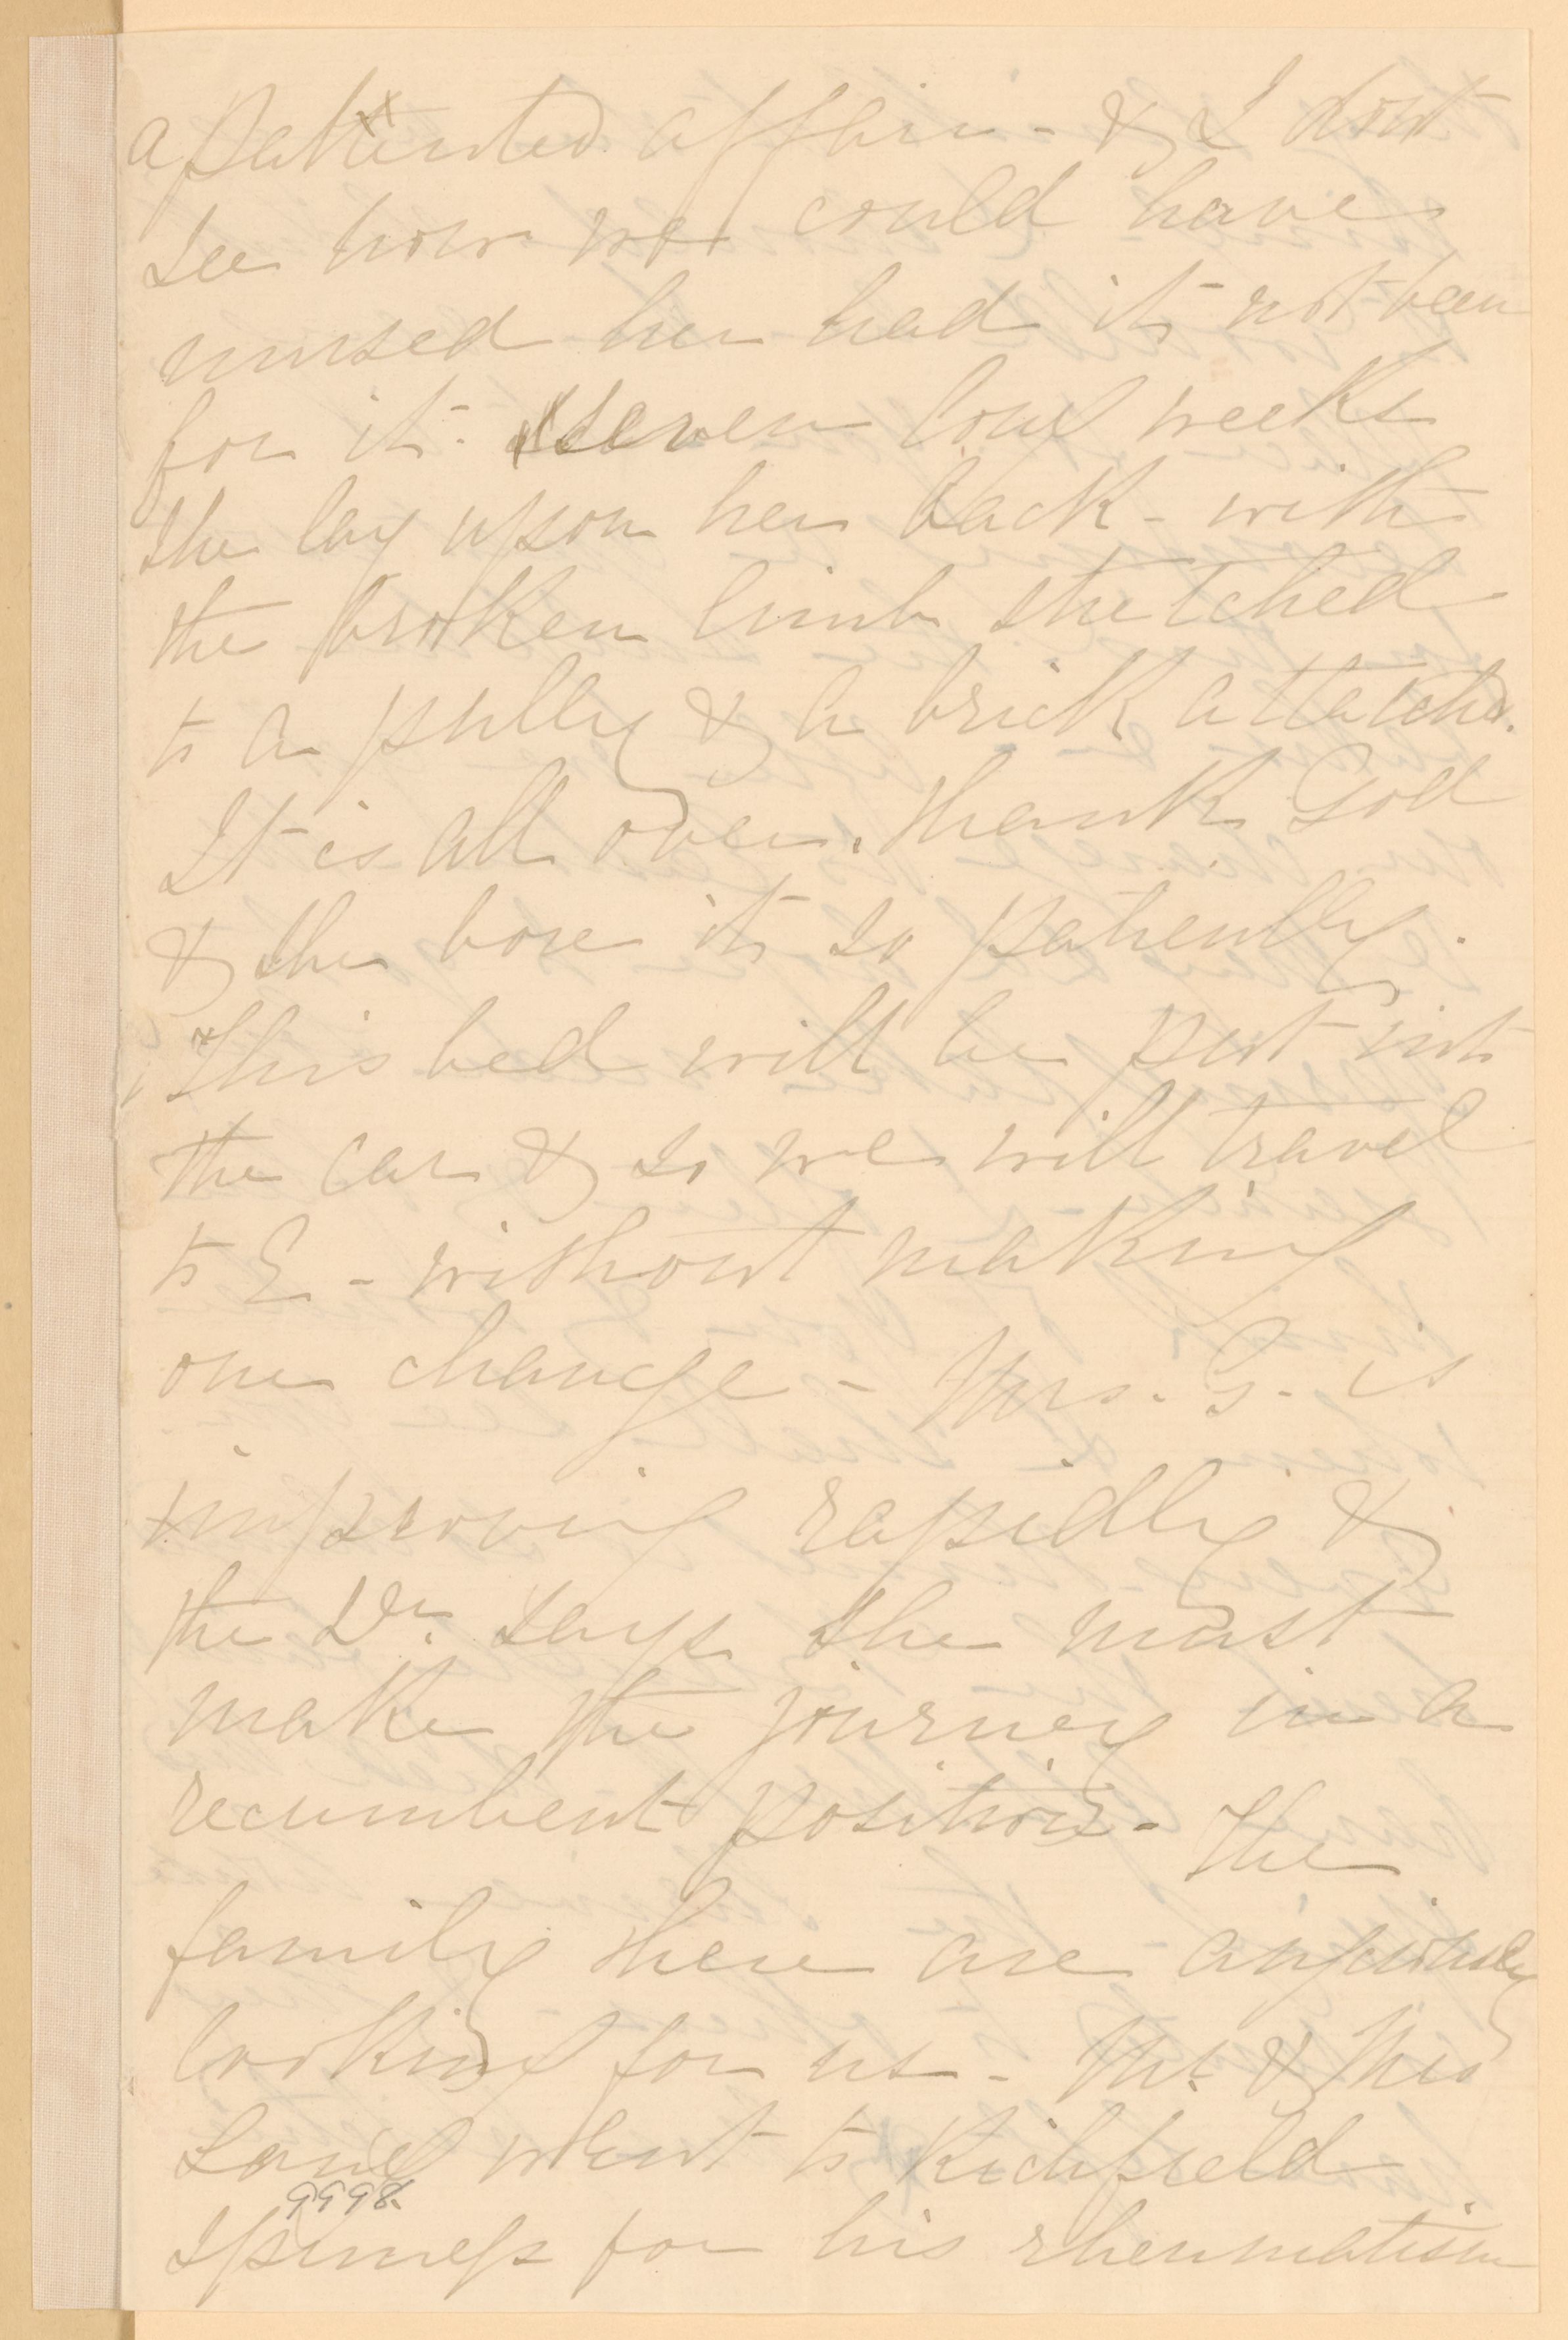 a patented affair - & I dont
see how we could have
nursed her had it not been
for it. seven long weeks
she lay upon her back - with
the broken limb stretched
to a pully & a brick attatched.
It is all over. thank God
& she bore it so patiently.
This bed will be put into
the car & so we will travel
to E - without making
one change - Mrs. G. is
improving rapidly &
the Dr. says she must
make the journey in a
recumbent position - The
family there are anxiously
looking for us - Mr. & Mrs
went to Richfield
9998.
Springs for his rheumatism